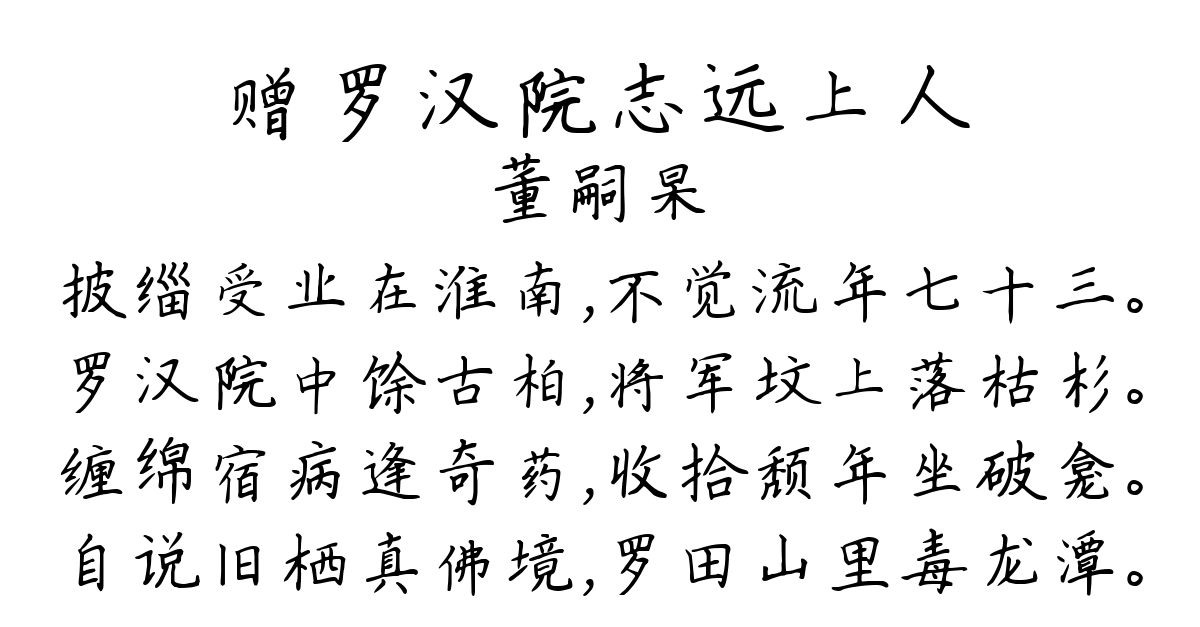 赠罗汉院志远上人
董嗣杲
披缁受业在淮南,不觉流年七十三。
罗汉院中馀古柏,将军坟上落枯杉。
缠绵宿病逢奇药,收拾颓年坐破龛。
自说旧栖真佛境,罗田山里毒龙潭。